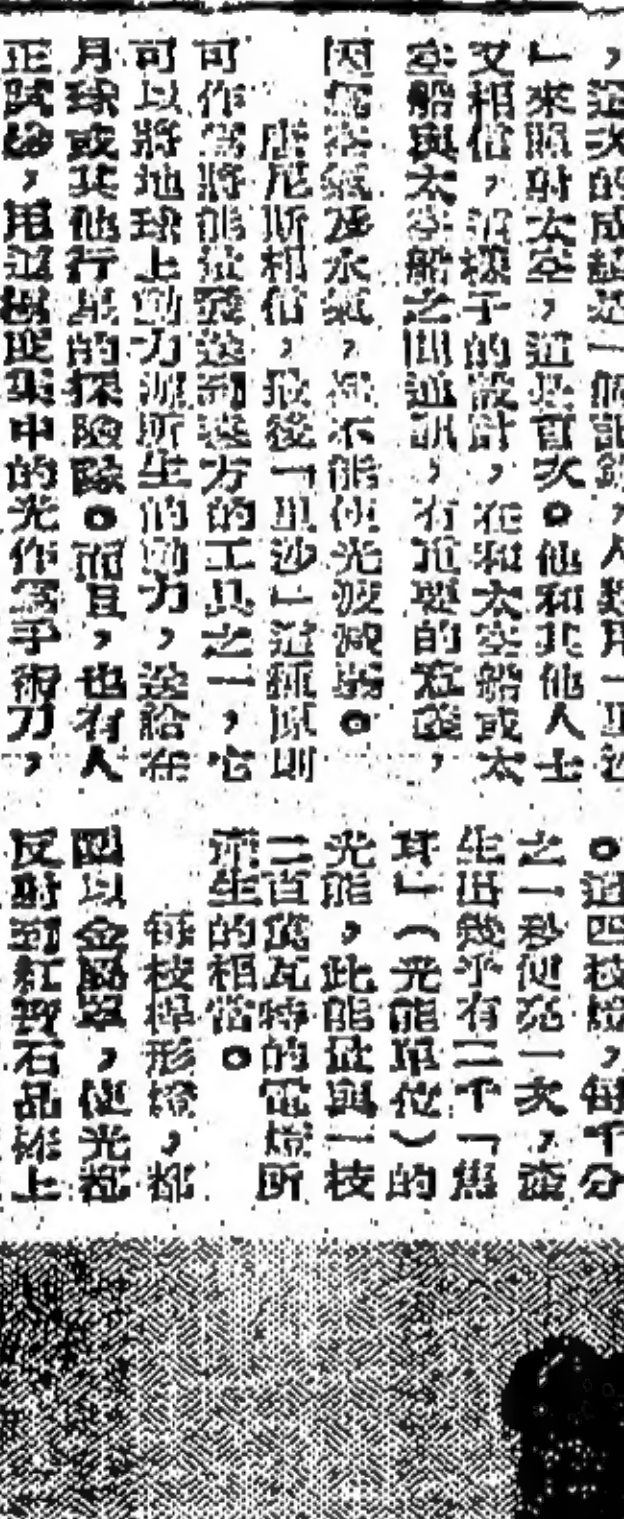 ，這次的成就是一個記錄，人類用「里沙
」來照射太空，這是首次。他和其他人士
又相信，這樣子的設計，在和太空船或太
空船與太空船之間通訊，有重要的意義，
因無空氣及水氣，並不能使光波減弱。
唐尼斯相信，最後「里沙」這種原則
可作為將能量發送到遠方的工具之一，它
可以將地球上動力源所生的動力，送給在
月球或其他行星的探險隊。而且，也有人
正試驗，用這極度集中的光作為手術刀，
。這四枝燈，每千分
之一秒便亮一次，產
生出幾乎有二千「焦
耳」（光能單位）的
光能，此能量與一枝
二百萬瓦特的電燈所
產生的相當。
每枝桿形燈，都
圍以金屬罩，使光都
反射到紅寶石晶棒上